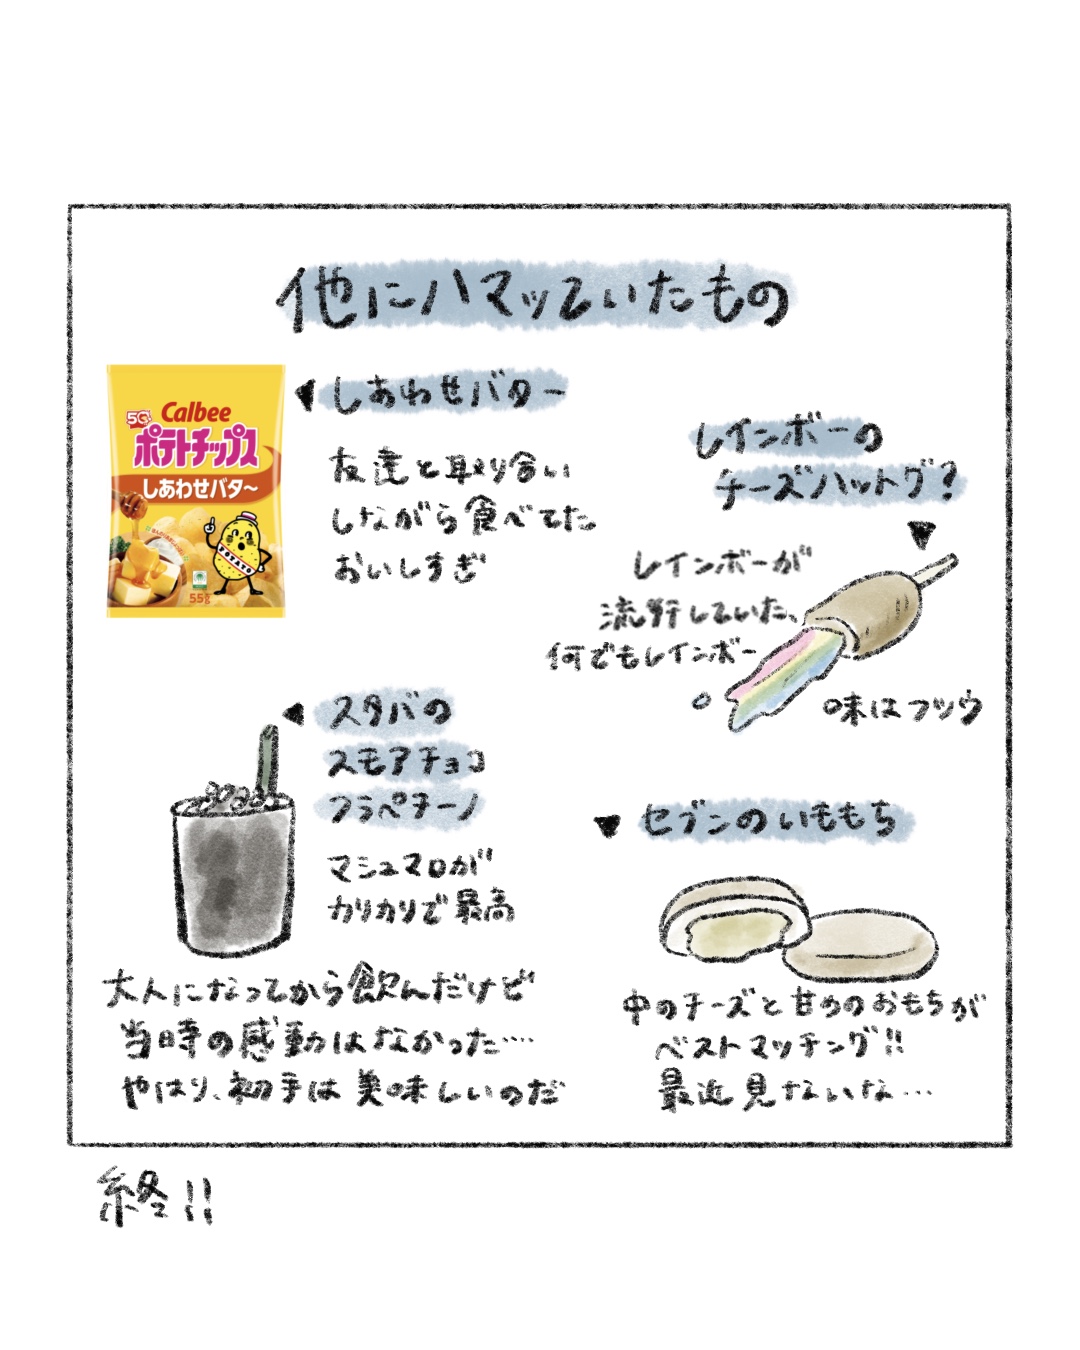 他にハマッていたもの
Calbee
ポテトチップス
しあわせバタ〜
POTATO
55g
しあわせバター
友達と取り合い
しながら食べてた
おいしすぎ
レインボーの
チーズハットグ?
レインボーが
流行していた、
何でもレインボー
味はフツウ
スタバの
スモアチョコ
フラペチーノ
マシュマロが
カリカリで最高
大人になってから飲んだけど
当時の感動はなかった‥‥
やはり、初手は美味しいのだ
セブンのいももち
中のチーズと甘めのおもちが
ベストマッチング!!
最近見ないな…
終!!